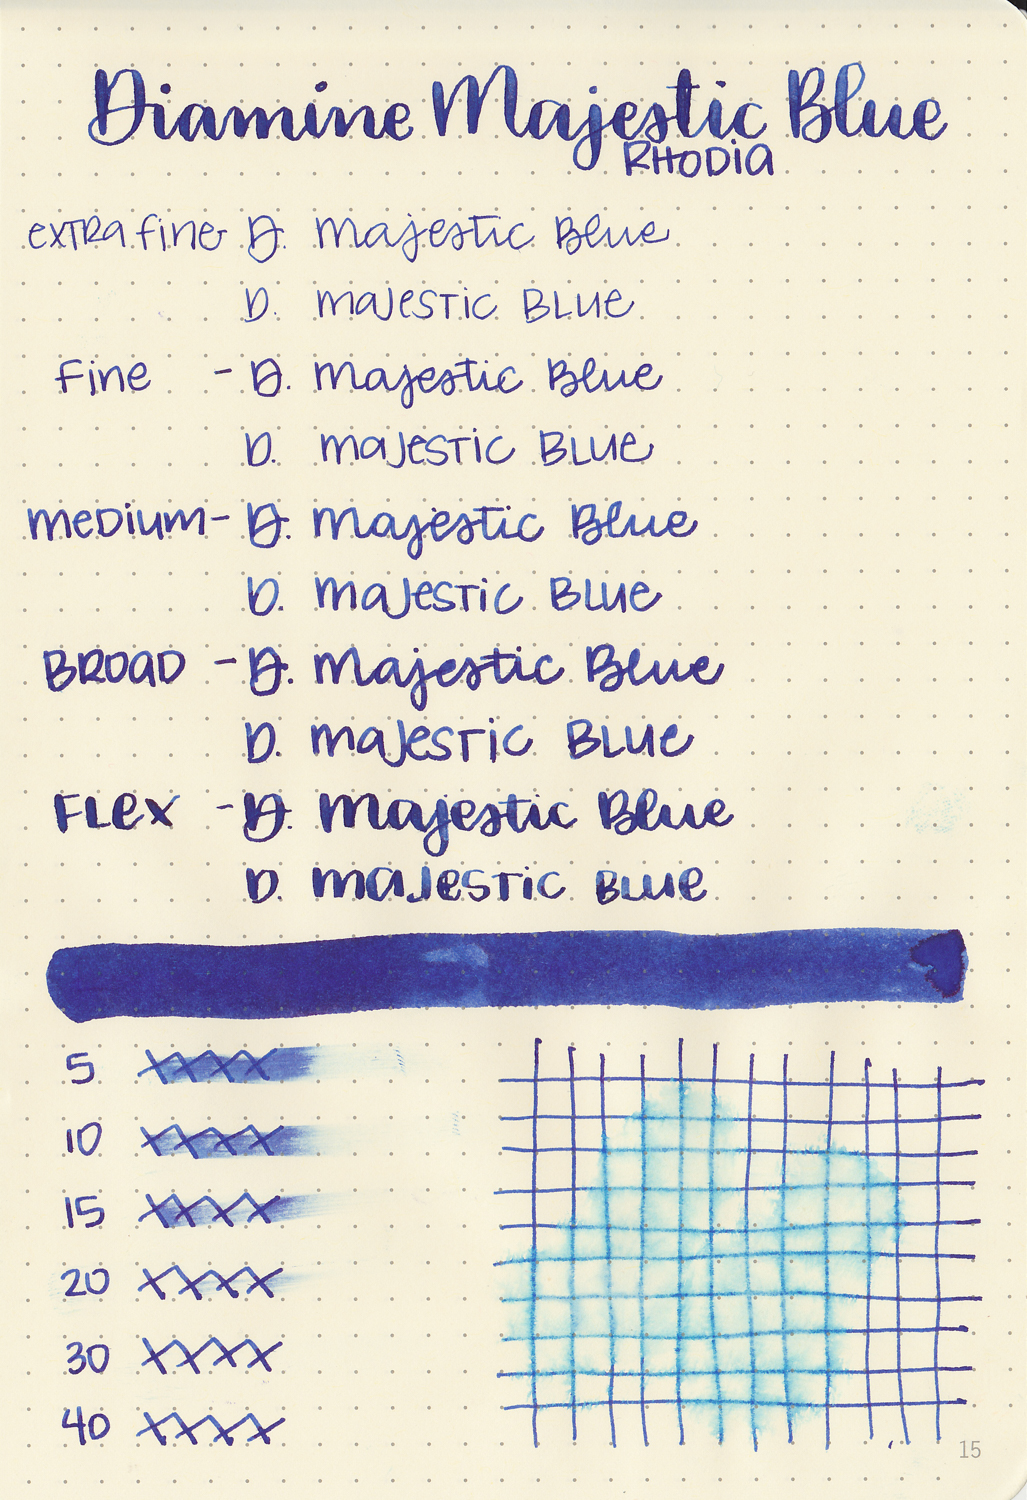 Diamine Majestic Blue
RHODIA
extra fine D. Majestic Blue
D. Majestic Blue
Fine - D. Majestic Blue
D. Majestic Blue
Medium - D. Majestic Blue
D. Majestic Blue
BROAD - D. Majestic Blue
D. Majestic Blue
FLex - D. Majestic Blue
D. Majestic Blue
5 XXXX
10 XXXX
15 XXXX
20 XXXX
30 XXXX
40 XXXX
15